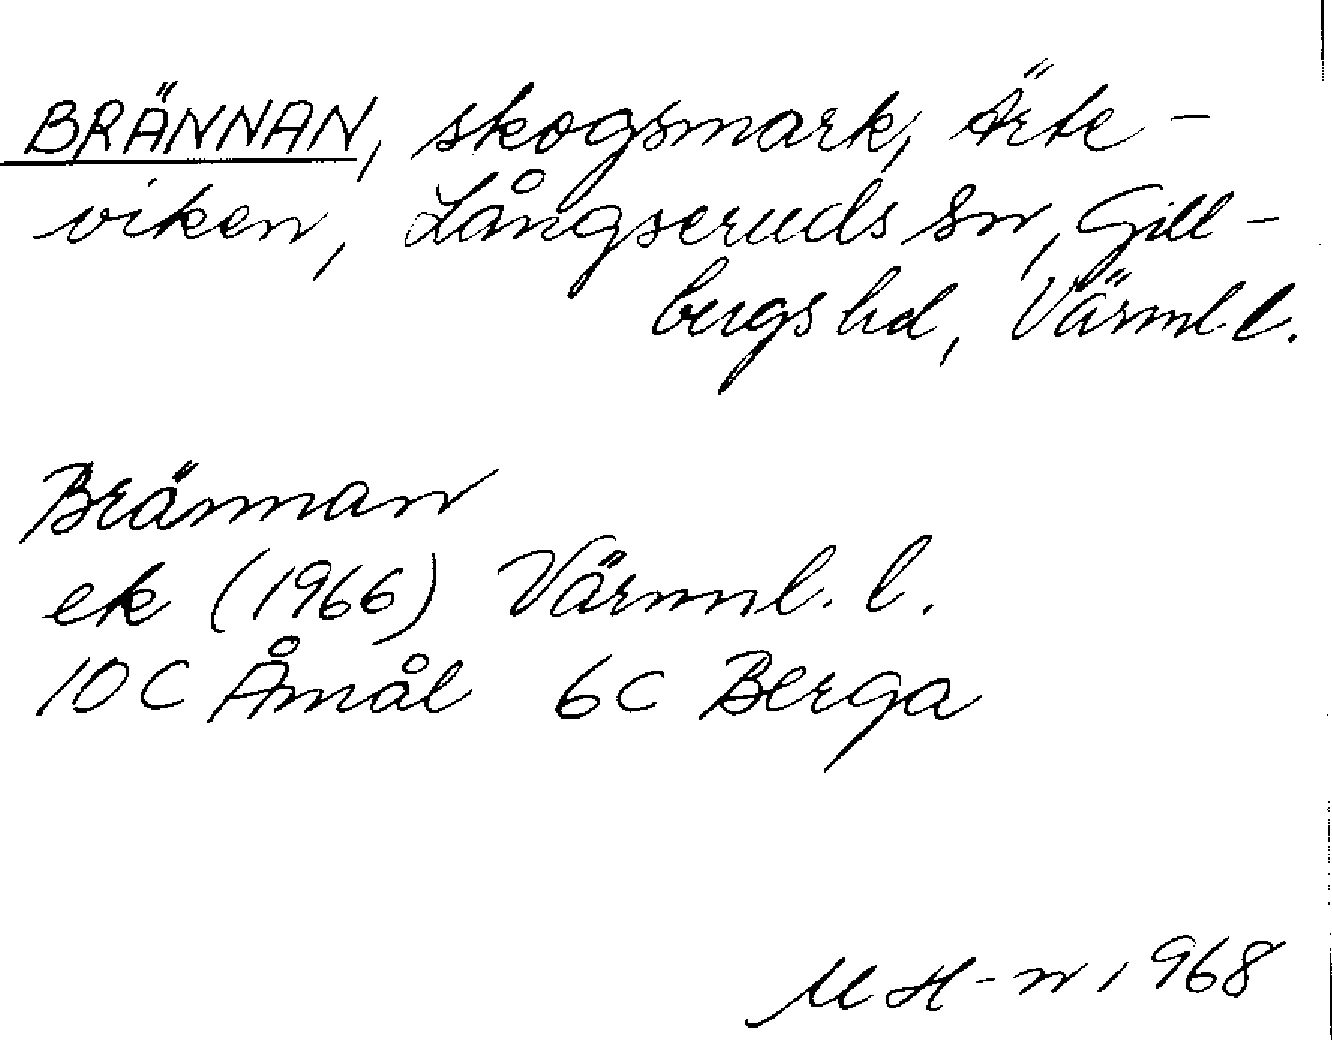 BRÄNNAN, skogsmark, Ärte-
viken, Långseruds sn, Gill-
bergs hd, Värml. l.
Brännan
ek (1966) Värml. l.
10C Åmål 6c Berga
M H-n 1968